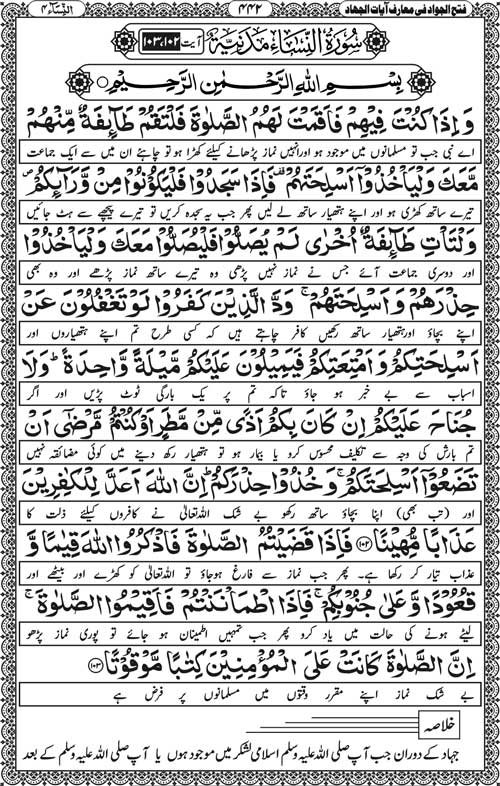 فتح الجواد فی معارف آیات الجهاد ۴۴۲ النِّسَآء ۴
سُوْرَۃُ النِّسَآءِ مَدَنِیَّۃٌ آیت ۱۰۲، ۱۰۳
بِسْمِ اللّٰہِ الرَّحْمٰنِ الرَّحِیْمِ
وَ اِذَا کُنْتَ فِیْهِمْ فَاَقَمْتَ لَهُمُ الصَّلٰوۃَ فَلْتَقُمْ طَآئِفَۃٌ مِّنْهُمْ
اے نبی جب تو مسلمانوں میں موجود ہو اور انہیں نماز پڑھانے کیلئے کھڑا ہو تو چاہئے ان میں سے ایک جماعت
مَّعَکَ وَلْیَاْخُذُوْۤا اَسْلِحَتَهُمْ فَاِذَا سَجَدُوْا فَلْیَکُوْنُوْا مِنْ وَّرَآئِکُمْ
تیرے ساتھ کھڑی ہو اور اپنے ہتھیار ساتھ لے لیں پھر جب یہ سجدہ کریں تو تیرے پیچھے سے ہٹ جائیں
وَلْتَاْتِ طَآئِفَۃٌ اُخْرٰی لَمْ یُصَلُّوْا فَلْیُصَلُّوْا مَعَکَ وَلْیَاْخُذُوْا
اور دوسری جماعت آئے جس نے نماز نہیں پڑھی وہ تیرے ساتھ نماز پڑھے اور وہ بھی
حِذْرَهُمْ وَ اَسْلِحَتَهُمْ ۚ وَدَّ الَّذِیْنَ کَفَرُوْا لَوْ تَغْفُلُوْنَ عَنْ
اپنے بچاؤ اور ہتھیار ساتھ رکھیں کافر چاہتے ہیں کہ کسی طرح تم اپنے ہتھیاروں اور
اَسْلِحَتِکُمْ وَ اَمْتِعَتِکُمْ فَیَمِیْلُوْنَ عَلَیْکُمْ مَّیْلَۃً وَّاحِدَۃً ؕ وَلَا
اسباب سے بے خبر ہو جاؤ تاکہ تم پر یک بارگی ٹوٹ پڑیں اور اگر
جُنَاحَ عَلَیْکُمْ اِنْ کَانَ بِکُمْ اَذًی مِّنْ مَّطَرٍ اَوْ کُنْتُمْ مَّرْضٰۤی اَنْ
تم بارش کی وجہ سے تکلیف محسوس کرو یا بیمار ہو تو ہتھیار رکھ دینے میں کوئی مضائقہ نہیں
تَضَعُوْۤا اَسْلِحَتَکُمْ ۚ وَخُذُوْا حِذْرَکُمْ ؕ اِنَّ اللّٰہَ اَعَدَّ لِلْکٰفِرِیْنَ
اور (تب بھی) اپنا بچاؤ ساتھ رکھو بے شک اللہ تعالیٰ نے کافروں کیلئے ذلت کا
عَذَابًا مُّهِیْنًا ﴿۱۰۲﴾ فَاِذَا قَضَیْتُمُ الصَّلٰوۃَ فَاذْکُرُوا اللّٰہَ قِیٰمًا وَّ
عذاب تیار کر رکھا ہے۔ پھر جب نماز سے فارغ ہوجاؤ تو اللہ تعالیٰ کو کھڑے اور بیٹھے اور
قُعُوْدًا وَّ عَلٰی جُنُوْبِکُمْ ۚ فَاِذَا اطْمَاْنَنْتُمْ فَاَقِیْمُوا الصَّلٰوۃَ ۚ
لیٹے ہونے کی حالت میں یاد کرو پھر جب تمہیں اطمینان ہو جائے تو پوری نماز پڑھو
اِنَّ الصَّلٰوۃَ کَانَتْ عَلَی الْمُؤْمِنِیْنَ کِتٰبًا مَّوْقُوْتًا ﴿۱۰۳﴾
بے شک نماز اپنے مقرر وقتوں میں مسلمانوں پر فرض ہے
خلاصہ
جہاد کے دوران جب آپ صلی اللہ علیہ وسلم اسلامی لشکر میں موجود ہوں یا آپ صلی اللہ علیہ وسلم کے بعد